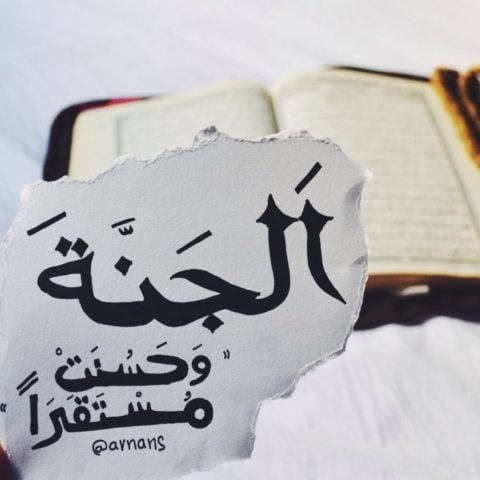 اَلْجَنَّةَ
"وَحَسُنَتْ
مُسْتَقَرَاً"
@avnans